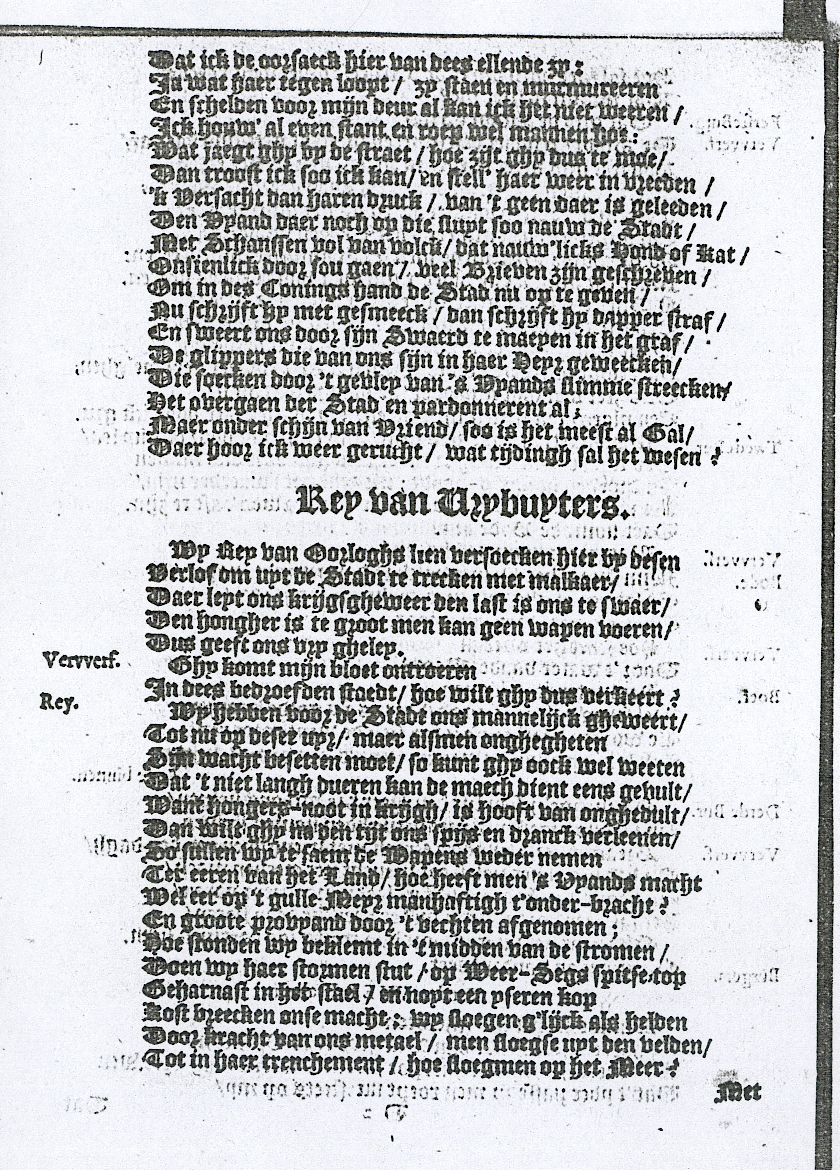 Dat ick de oorsaeck hier van dees ellende zy:
Ja wat haer tegen loopt / zy staen en murmureeren
En schelden voor mijn deur al kan ick het niet weeren /
Ick houw' al even stant en roep wel mannen hoe:
Wat jaegt ghy by de straet / hoe zijt ghy dus te moe /
Dan troost ick soo ick kan / en stell' haer weer in vreeden /
'k Versacht dan haren druck / van 't geen daer is geleeden /
Den Vyand daer noch op die sluyt soo nauw de Stadt /
Met Schanssen vol van volck / dat nauw'licks Hond of Kat /
Onsienlick door sou gaen / veel Brieven zijn geschreven /
Om in des Conings hand de Stad nu op te geven /
Nu schrijft hy met gesmeeck / dan schrijft hy dapper straf /
En sweert ons door sijn Swaerd te maeyen in het graf /
De glippers die van ons sijn in haer Heyr geweecken /
Die soecken door 't gevley van 's Vyands slimme streecken /
Het overgaen der Stad en pardonneren't al;
Maer onder schijn van Vriend / soo is het meest al Gal /
Daer hoor ick weer gerucht / wat tijdingh sal het wesen?
Rey van Vrybuyters.
Wy Rey van Oorloghs lien versoecken hier by desen
Verlof om uyt de Stadt te trecken met malkaer /
Daer leyt ons krijgsgheweer den last is ons te swaer /
Den hongher is te groot men kan geen wapen voeren /
Dus geeft ons vry gheley.
Vervverf. Ghy komt mijn bloet ontroeren
In dees bedroefden staedt / hoe wilt ghy dus verkeert?
Rey. Wy hebben voor de Stadt ons mannelijck gheweert /
Tot nu op dese uyr / maer alsmen onghegheten
Sijn wacht besetten moet / so kunt ghy oock wel weeten
Dat 't niet langh dueren kan de maech dient eens gevult /
Want hongers-noot in krijgh / is hooft van onghedult /
Dan wilt ghy na den tijt ons spijs en dranck verleenen /
So sullen wy te saem de Wapens weder nemen
Ter eeren van het Land / hoe heeft men 's Vyands macht
Wel eer op 't gulle Meyr manhaftigh t'onder-bracht?
En groote provyand door 't vechten afgenomen;
Hoe stonden wy beklemt in 't midden van de stromen /
Doen wy haer stormen stut / op Weer-Segs spitse top
Geharnast in het stael / en noyt een yseren kop
Kost breecken onse macht: wy sloegen g'lijck als helden
Door kracht van ons metael / men sloegse uyt den velden /
Tot in haer trenchement / hoe sloegmen op het Meer?
Met